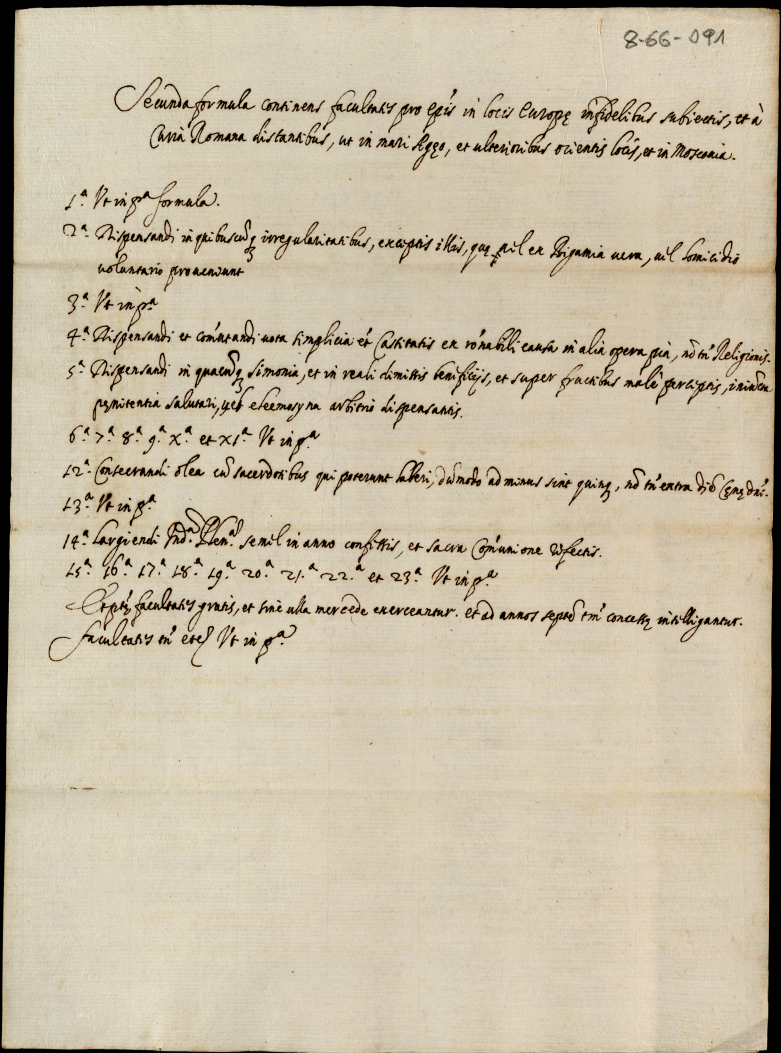 8-66-091
Secunda formula continens facultates pro Ep̃is in locis Europę infidelibus subiectis, et à
Curia Romana distantibus, ut in mari Ægęo, et ulterioribus orientis locis, et in Moscouia.
1.ª Vt in p.ª formula.
2.ª Dispensandi in quibuscũq; irregularitatibus, exceptis illis, quę vel ex Bigamia uera, uel homicidio
uoluntario proueniunt
3.ª Vt in p.ª
4.ª Dispensandi et com̃utandi uota simplicia et Castitatis ex rõnabili causa in alia opera pia, nõ tñ Religionis.
5.ª Dispensandi in quacũq; simonia, et in reali dimissis beneficijs, et super fructibus malè perceptis, iniuncta
pęnitentia salutari, uel eleemosyna arbitrio dispensantis.
6.ª 7.ª 8.ª 9.ª X.ª et XI.ª Vt in p.ª
12.ª Consecrandi olea cũ sacerdotibus qui poterunt haberi, dũmodo ad minus sint quinq;, nõ tñ extra diẽ Cęnę dñi.
13.ª Vt in p.ª
14.ª Largiendi Ind.ª Plen.ª semel in anno confessis, et sacra Com̃unione refectis.
15.ª 16.ª 17.ª 18.ª 19.ª 20.ª 21.ª 22.ª et 23.ª Vt in p.ª
facultates gratis, et sine ulla mercede exerceantur. et ad annos septẽ tm̃ concessę intelligantur.
Facultates tñ Vt in p.ª